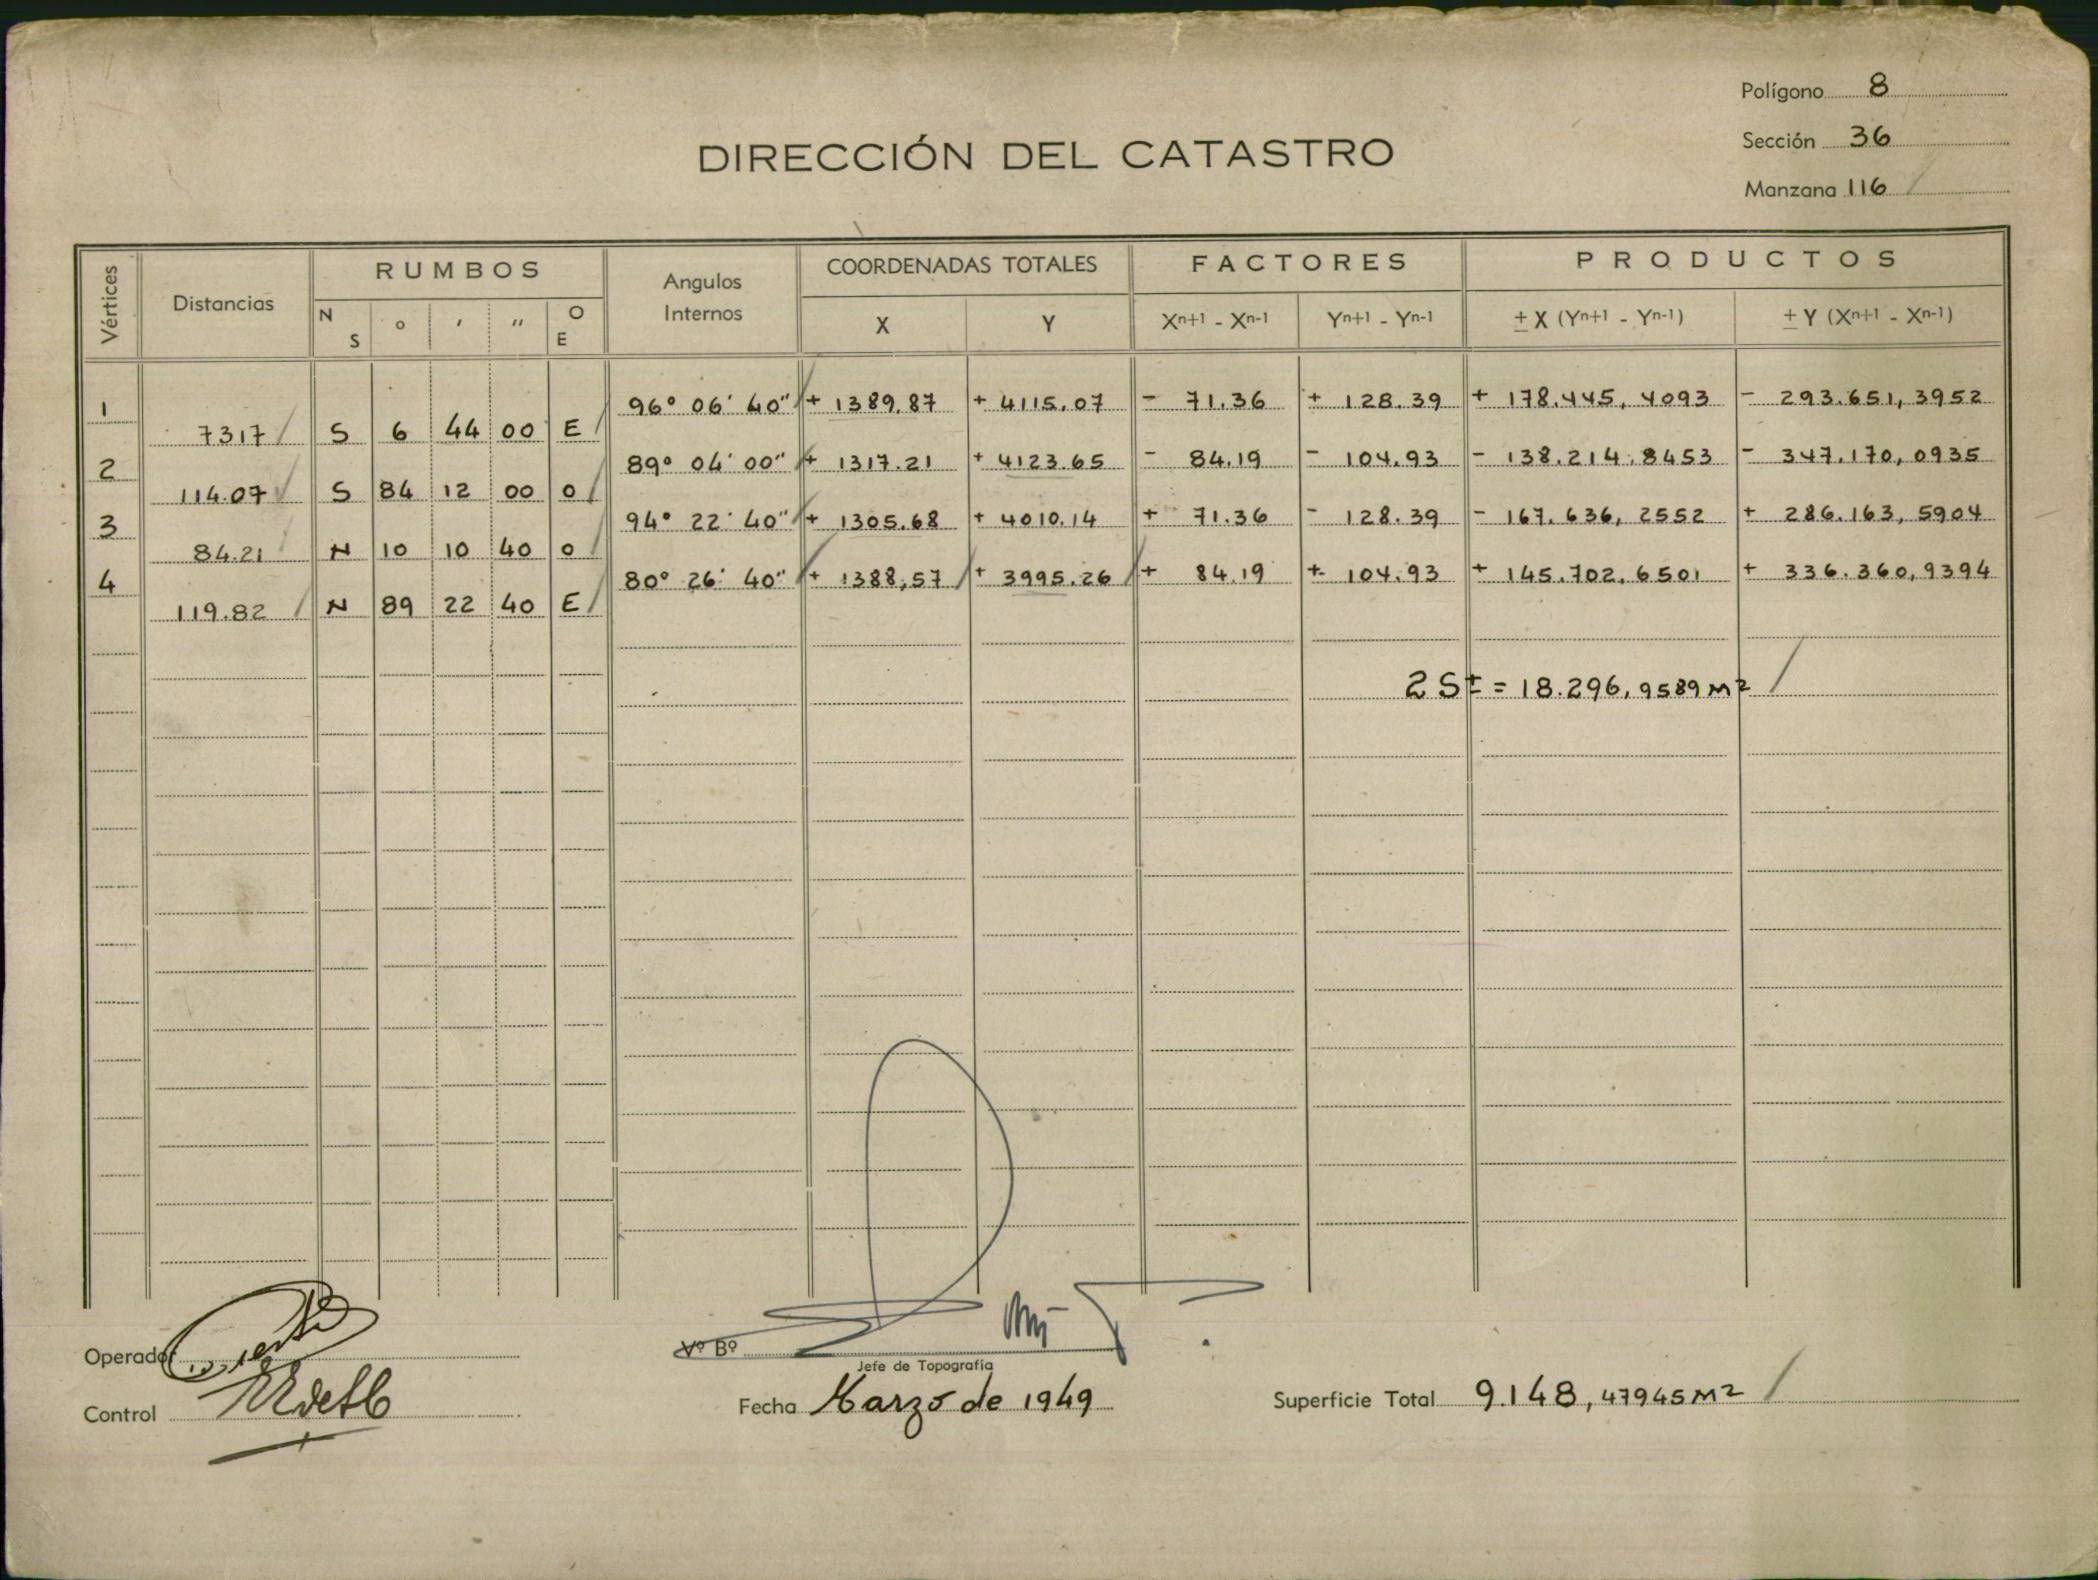 Polígono 8
DIRECCIÓN DEL CATASTRO
Sección 36
Manzana 116
Vértices Distancias RUMBOS Angulos Internos COORDENADAS TOTALES FACTORES PRODUCTOS
N S o ' '' O E X Y Xn+1 - Xn-1 Yn+1 - Yn-1 ± X (Yn+1 - Yn-1) ± Y (Xn+1 - Xn-1)
1 96° 06' 40" + 1389.87 + 4115.07 - 71.36 + 128.39 + 178.445,4093 - 293.651,3952
73.17 S 6 44 00 E
2 89° 04' 00" + 1317.21 + 4123.65 - 84.19 - 104.93 - 138.214.8453 - 347.170,0935
114.07 S 84 12 00 O
3 94° 22' 40" + 1305.68 + 4010.14 + 71.36 - 128.39 - 167.636,2552 + 286.163,5904
84.21 N 10 10 40 O
4 80° 26' 40" + 1388,57 + 3995.26 + 84.19 + 104.93 + 145.702.6501 + 336.360,9394
119.82 N 89 22 40 E
2 S ± = 18.296,9589 M2
Operador
Vº Bº
Jefe de Topografía
Control
Fecha Marzo de 1949
Superficie Total 9.148,47945 M2